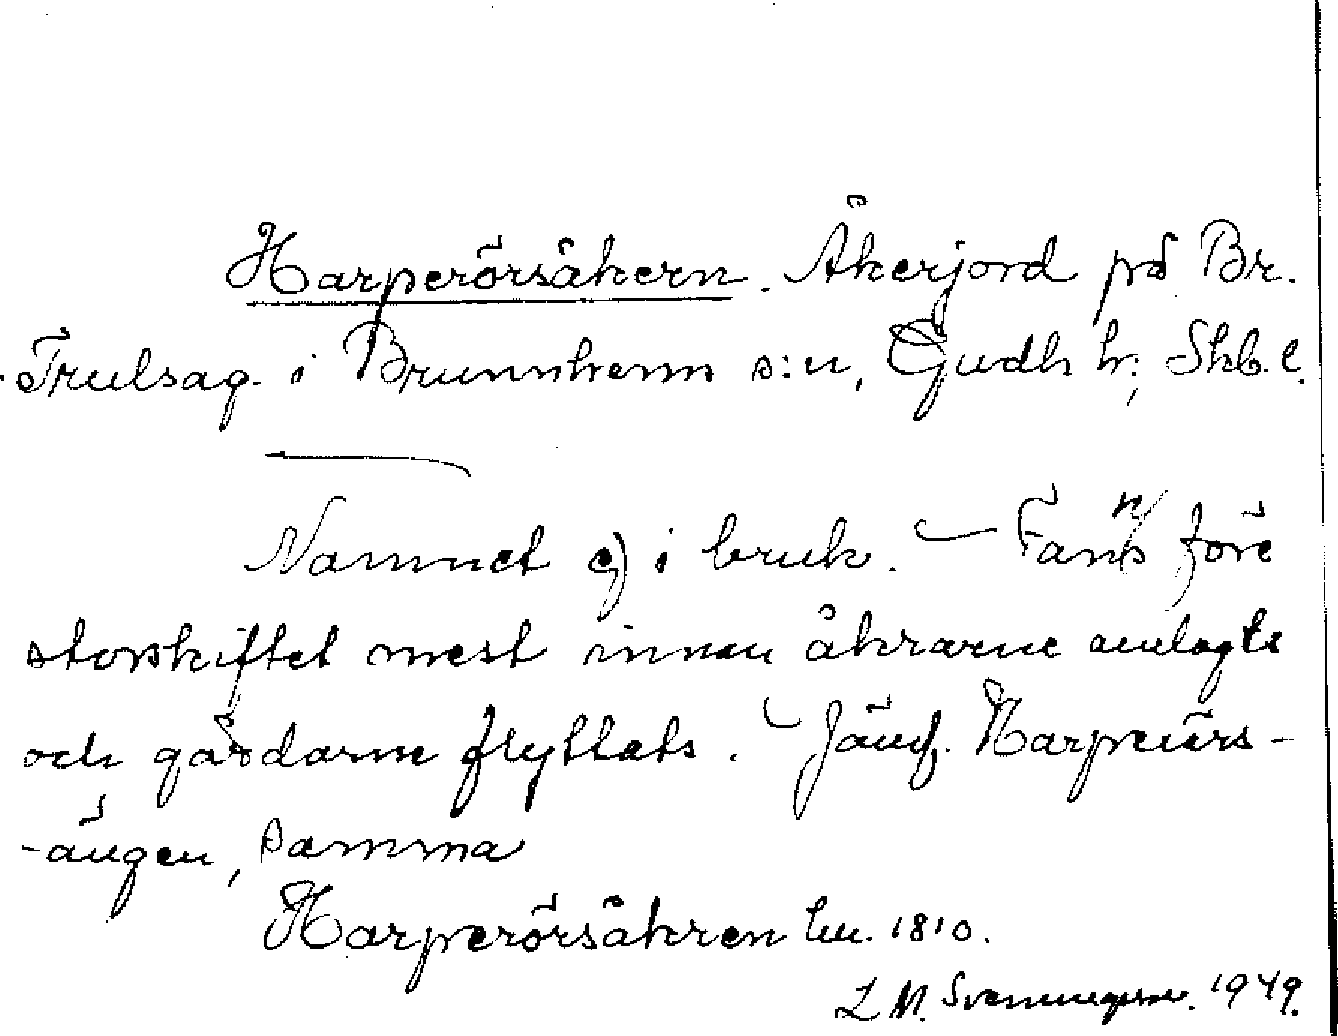 Harperörsåkern. Åkerjord på Br.
Trulsag. i Brunnhem s:n, Gudh h:, Skb. l.
Namnet ej i bruk. — Fanns före
storskiftet mest innan åkrarne anlagts
och gårdarne flyttats. — Jämf. Harpeörs-
-ängen, samma
Harperörsåkren lm. 1810.
L. M. Svenungsson. 1949.